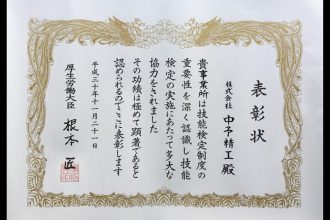 表彰状
株式会社
中予精工 殿
貴事業所は技能検定制度の
重要性を深く認識し技能
検定の実施にあたって多大な
協力をされました
その功績は極めて顕著であると
認められるのでここに表彰します
平成三十年十一月二十一日
厚生労働大臣 根本 匠